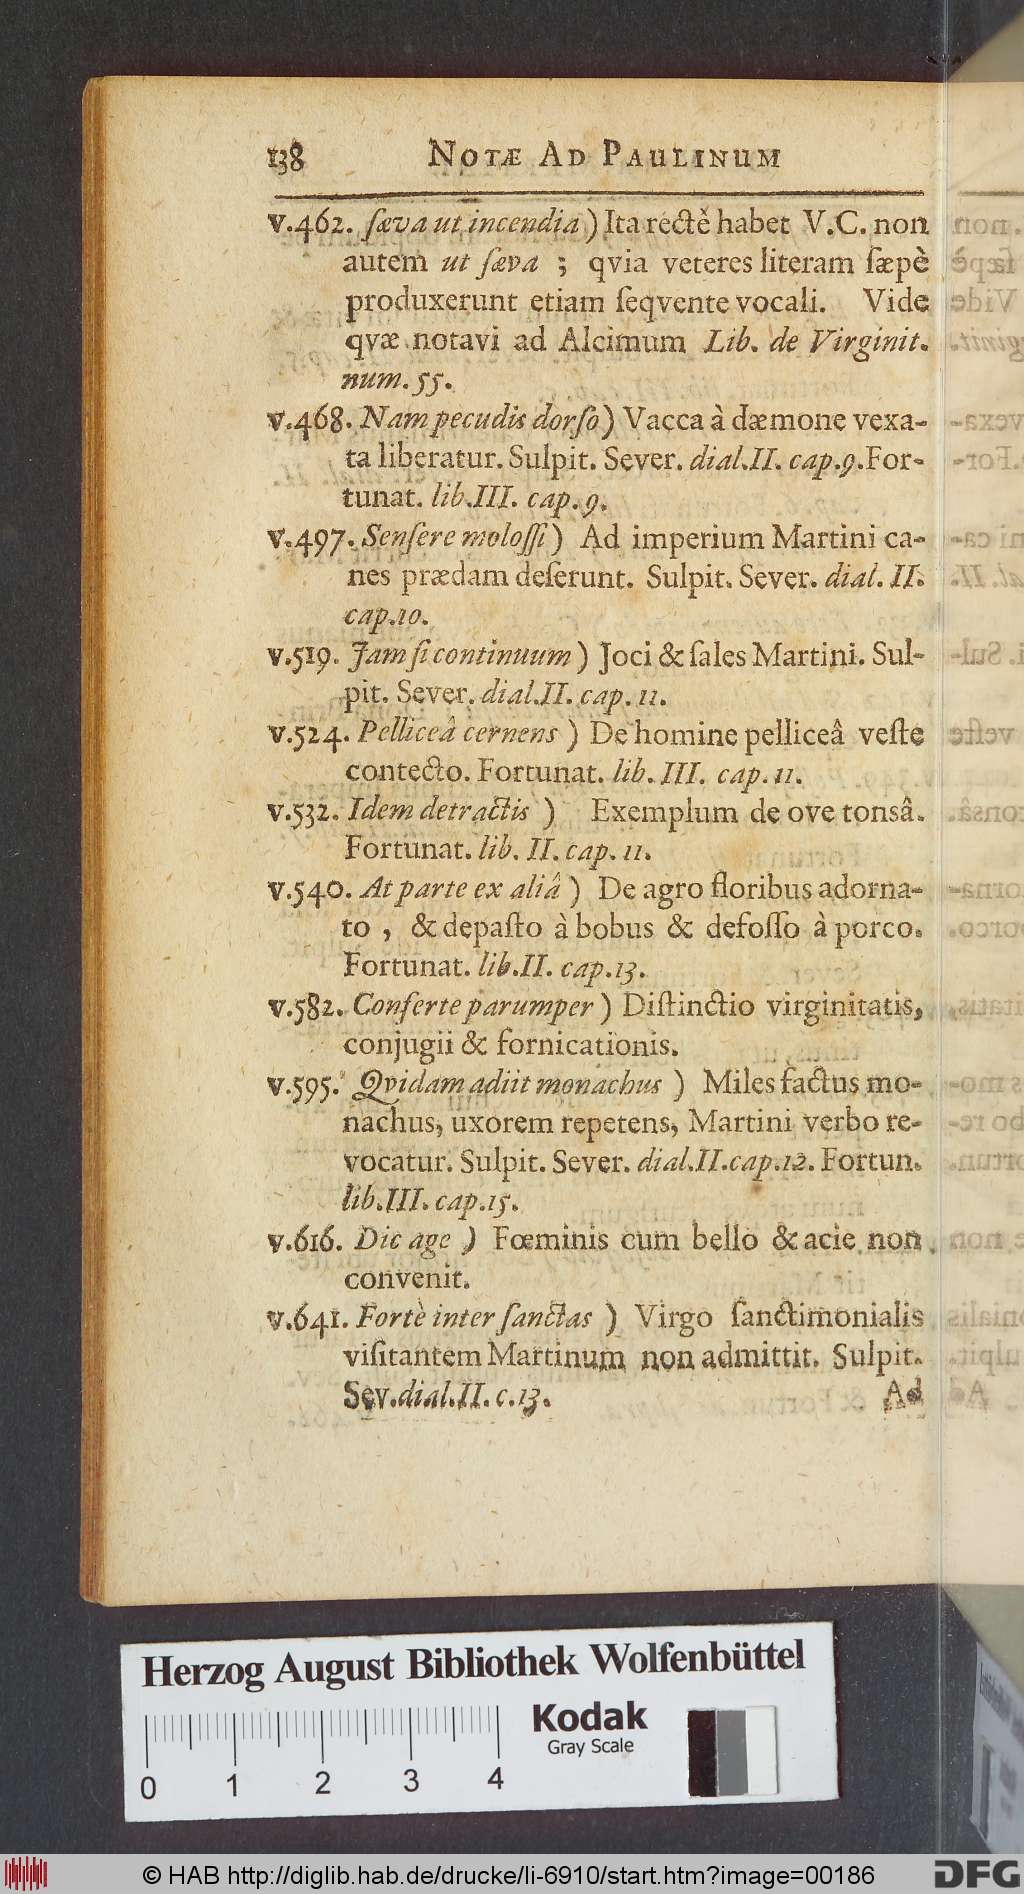 138 NOTÆ AD PAULINUM
v.462. ſæva ut incendia) Ita rectè habet V.C. non
autem ut ſæva ; qvia veteres literam ſæpè
produxerunt etiam ſeqvente vocali. Vide
qvæ notavi ad Alcimum Lib. de Virginit.
num. 55.
v.468. Nam pecudis dorſo) Vacca à dæmone vexa-
ta liberatur. Sulpit. Sever. dial. II. cap. 9. For-
tunat. lib. III. cap. 9.
v.497. Senſere moloſſi) Ad imperium Martini ca-
nes prædam deſerunt. Sulpit. Sever. dial. II.
cap. 10.
v.519. Jam ſi continuum) Joci & ſales Martini. Sul-
pit. Sever. dial. II. cap. 11.
v.524. Pelliceâ cernens) De homine pelliceâ veſte
contecto. Fortunat. lib. III. cap. 11.
v.532. Idem detractis ) Exemplum de ove tonsâ.
Fortunat. lib. II. cap. 11.
v.540. At parte ex aliâ ) De agro floribus adorna-
to , & depaſto à bobus & defoſſo à porco.
Fortunat. lib. II. cap. 13.
v.582. Conferte parumper ) Diſtinctio virginitatis,
conjugii & fornicationis.
v.595. Qvidam adiit monachus ) Miles factus mo-
nachus, uxorem repetens, Martini verbo re-
vocatur. Sulpit. Sever. dial. II. cap. 12. Fortun.
lib. III. cap. 15.
v.616. Dic age ) Fœminis cum bello & acie non
convenit.
v.641. Fortè inter ſanctas ) Virgo ſanctimonialis
viſitantem Martinum non admittit. Sulpit.
Sev. dial. II. c. 13. Ad
Herzog August Bibliothek Wolfenbüttel
Kodak
Gray Scale
0 1 2 3 4
© HAB http://diglib.hab.de/drucke/li-6910/start.htm?image=00186
DFG